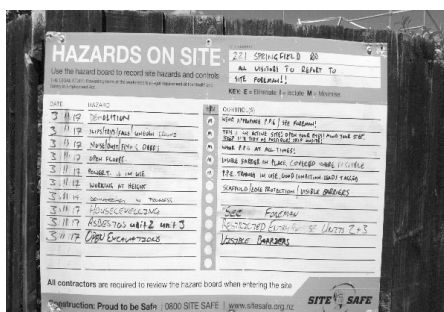 HAZARDS ON SITE
221 SPRINGFIELD RD
ALL VISITORS TO REPORT TO
SITE FOREMAN!!
Use the hazard board to record site hazards and controls
KEY: E – Eliminate I – Isolate M – Minimise
DATE HAZARD CONTROL(S)
3 11 17 DEMOLITION
WEAR APPROPRIATE P.P.E / SEE FOREMAN!
3 11 17 SLIPS/TRIPS/FALLS
THIS IS AN ACTIVE SITE! OPEN YOUR EYES! MIND YOUR STEP.
3 11 17 NOISE/DUST/FLYING DEBRIS
WEAR P.P.E AT ALL TIMES!
3 11 17 OPEN FLOORS
VISIBLE BARRIER IN PLACE,
3 11 17 IN USE
P.P.E, TRAINED IN USE, GOOD CONDITION LEADS TAGGED
3 11 17 WORKING AT HEIGHT
SCAFFOLD / EDGE PROTECTION / VISIBLE BARRIERS
3 11 17 IN PROGRESS
3 11 17 HOUSELEVELLING
SEE FOREMAN
3 11 17 ASBESTOS unit 2 unit 3
RESTRICTED ENTRY UNITS 2+3
3 11 17 OPEN EXCAVATIONS
VISIBLE BARRIERS
All contractors are required to review the hazard board when entering the site
Construction: Proud to be Safe | 0800 SITE SAFE | www.sitesafe.org.nz
SITE SAFE